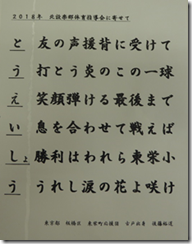 2018年 北投奈部体育指導会に寄せて
とう 友の声援背に受けて
打とう炎のこの一球
え 笑顔弾ける最後まで
い 息を合わせて戦えば
しょ 勝利はわれら東栄小
う うれし涙の花よ咲け
東京都 板橋区 東栄町応援団